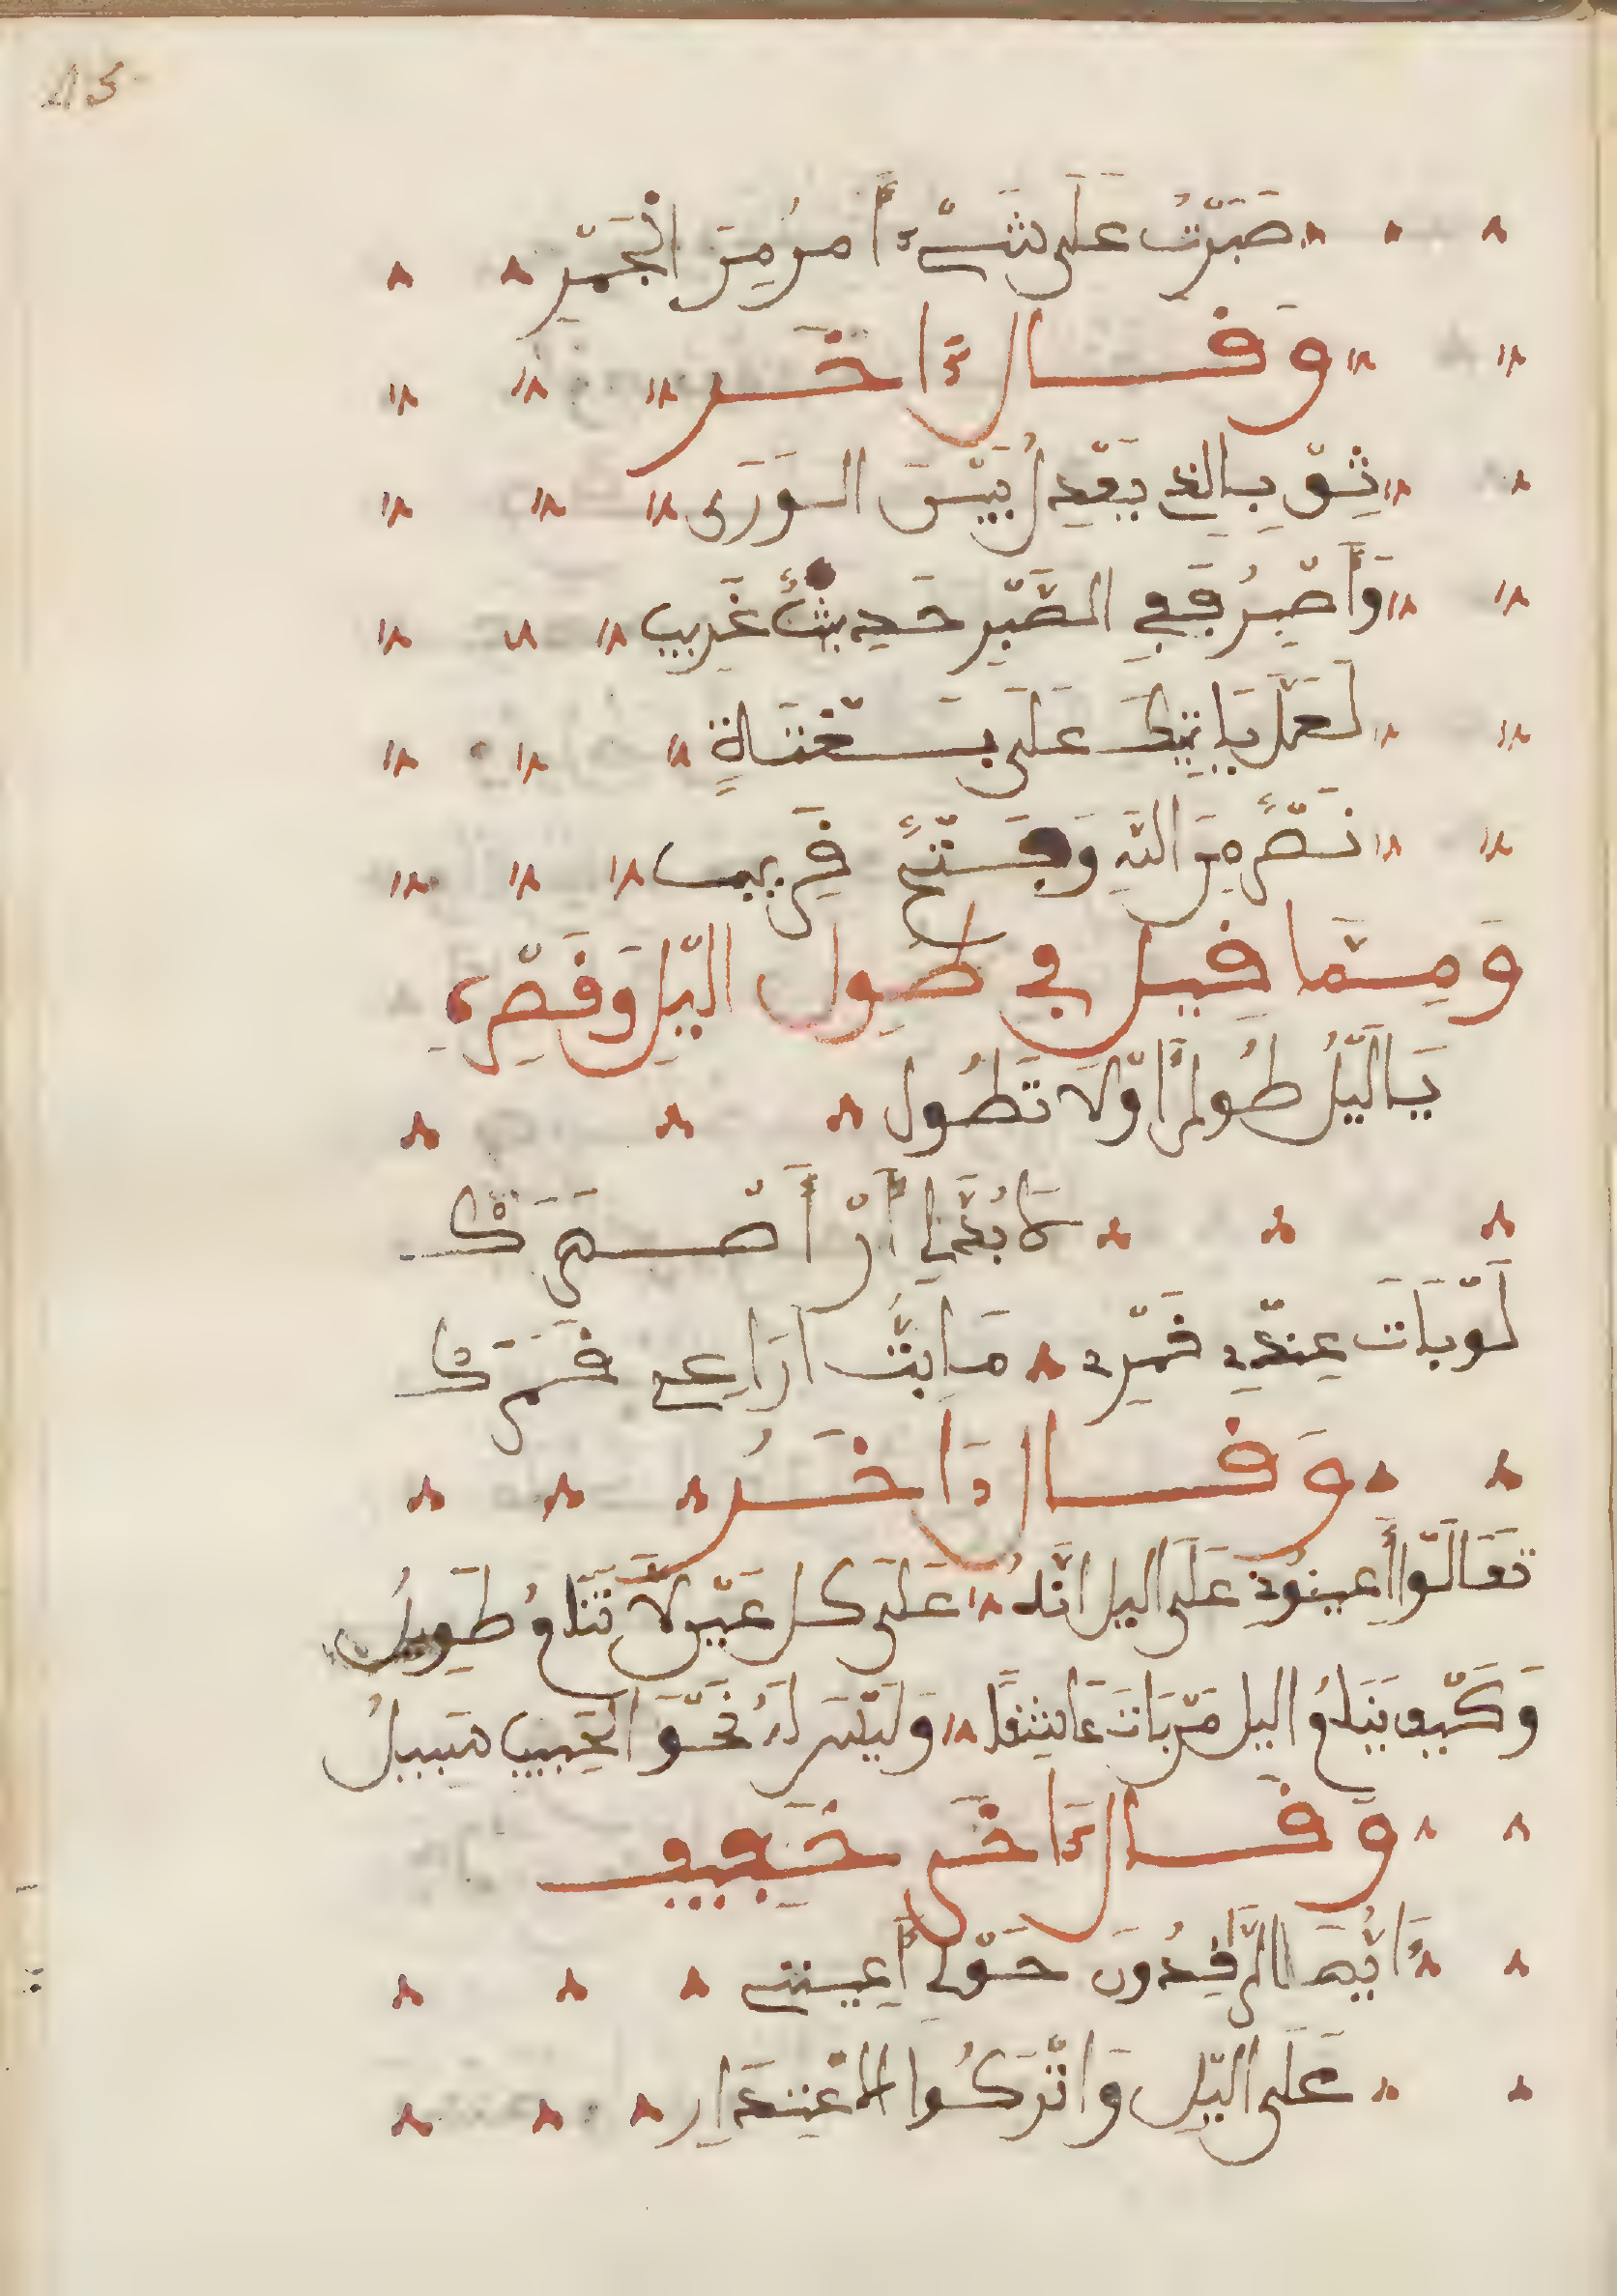 15
صَبَرْتُ عَلَى شَيْءٍ أَمَرُّ مِنَ الْجَمْرِ
وَقَالَ ءَاخَر
ثِقْ بِالذِي يَعْدِلُ بَيْنَ الْوَرَى
وَأَصْبِرْ فَفِي الصَّبْرِ حَدِيثٌ غَرِيب
لَعَلَّ يَاتِيكَ عَلَى بَغْتَةٍ
نَصْرٌ مِنَ اللَّهِ وَفَتْحٌ قَرِيب
وَمِمَّا قِيلَ فِي طُولِ الَّيْلِ وَقَصْرِهِ
يَا لَيْلُ طُولْ أَوْ لَا تَطُول
لَا بُدَّ لِي أَنْ أَسْهَرَكْ
لَوْ بَاتَ عِنْدِي قَمَرِي مَا بِتُّ ارَاعِي قَمَرَكْ
وَقَالَ ءَاخَرُ
تَعَالَوْا أَعِينُونِي عَلَى اليل انَّهُ عَلَى كل عَيْنٍ لَا تَنَامُ طَوِيلُ
وَكَيْفَ يَنَامُ اليل مَنْ بَاتَ عَاشِقًا وَلَيْسَ لَهُ نَحْوَ الْحَبِيبِ سَبِيلُ
وَقَالَ ءَاخَر خَفِيف
أَيُّهَا الرَّاقِدُونَ حَوْلِي أَعِينُنِي
عَلَى الَّيْلِ وَاتْرُكُوا الاعْتِذَارِ